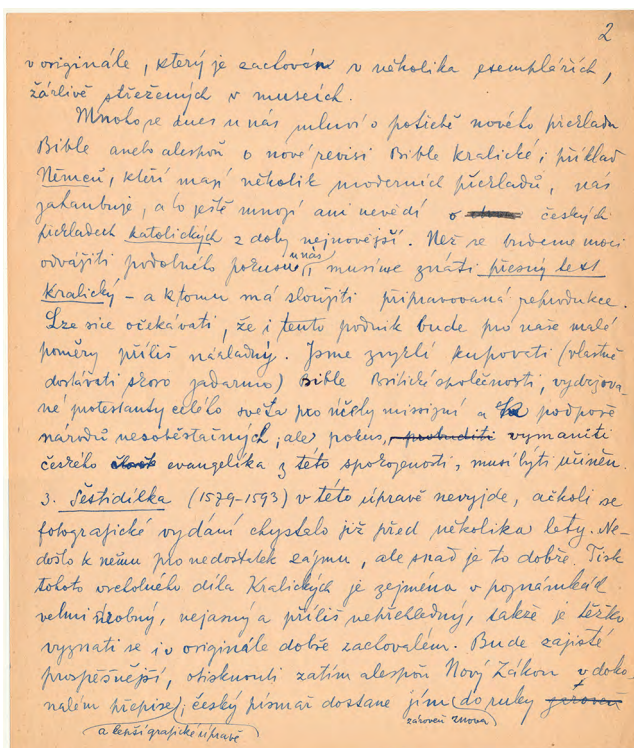 2
v originále, který je zachován v několika exemplářích,
žárlivě střežených v museích.
Mnoho se dnes u nás mluví o potřebě nového překladu
Bible anebo alespoň o nové revisi Bible Kralické; příklad
Němců, kteří mají několik moderních překladů, nás
zahanbuje, a to ještě mnozí ani nevědí o českých
překladech katolických z doby nejnovější. Než se budeme moci
odvážiti podobného pokusu u nás, musíme znáti přesný text
Kralický – a k tomu má sloužiti připravovaná reprodukce.
Lze sice očekávati, že i tento podnik bude pro naše malé
poměry příliš nákladný. Jsme zvyklí kupovati (vlastně
dostávati skoro zadarmo) Bible Britické společnosti, vydržova-
né protestanty celého světa pro účely missijní a k podpoře
národů nesoběstačných; ale pokus, probuditi vymaniti
českého evangelíka z této spokojenosti, musí býti učiněn.
3. Šestidílka (1579–1593) v této úpravě nevyjde, ačkoli se
fotografické vydání chystalo již před několika lety. Ne-
došlo k němu pro nedostatek zájmu, ale snad je to dobře. Tisk
tohoto vrcholného díla Kralických je zejména v poznámkách
velmi drobný, nejasný a příliš nepřehledný, takže je těžko
vyznati se i v originále dobře zachovalém. Bude zajisté
prospěšnější, otisknouti zatím alespoň Nový Zákon v doko-
nalém přepise a lepší grafické úpravě; český písmař dostane jím zároveň znova do ruky